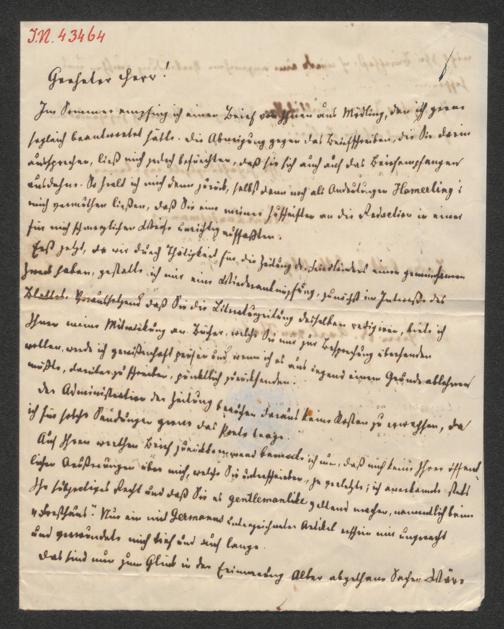 I.N. 43464
Geehrter Herr!
Im Sommer empfing ich einen Brief von Ihnen aus Mödling, den ich gerne
sogleich beantwortet hätte. Die Abneigung gegen das Briefschreiben, die Sie darin
aussprechen, ließ mich jedoch befürchten, daß sie sich auch auf das Briefempfangen
ausdehne. So hielt ich mich denn zurück, selbst dann noch als Andeutungen Hamerling's
mich vermuthen ließen, daß Sie eine meiner Zuschriften an die Redaction in einer
für mich schmerzlichen Weise unrichtig auffaßten.
Erst jetzt, da wir durch Thätigkeit für die Zeitung einen gemeinsamen
Zweck haben, gestatte ich mir eine Wiederanknüpfung, zunächst im Interesse des
Blattes. Voraussetzend daß Sie die Literaturzeitung desselben redigiren, biete ich
Ihnen meine Mitwirkung an. Bücher, welche Sie mir zur Besprechung übersenden
wollen, werde ich gewissenhaft prüfen und wenn ich es aus irgend einem Grunde ablehnen
müßte, darüber zu schreiben, pünktlich zurücksenden.
Der Administration der Zeitung brauchen daraus keine Kosten zu erwachsen, da
ich für solche Sendungen gerne das Porto trage.
Auf Ihren werthen Brief zurückkommend bemerke ich nur, daß mich keine Ihrer öffent
lichen Äußerungen über mich, welche Sie unterschrieben, je verletzte; ich anerkannte stets
Ihr Recht und daß Sie es gentlemanlike geltend machen, namentlich beim
"Forsthaus". Nur ein mit Germanus unterzeichneter Artikel schien mir ungerecht
und verwundete mich tief und auf lange.
Das sind nun zum Glück in der Erinnerung Alter abgethane Sachen.